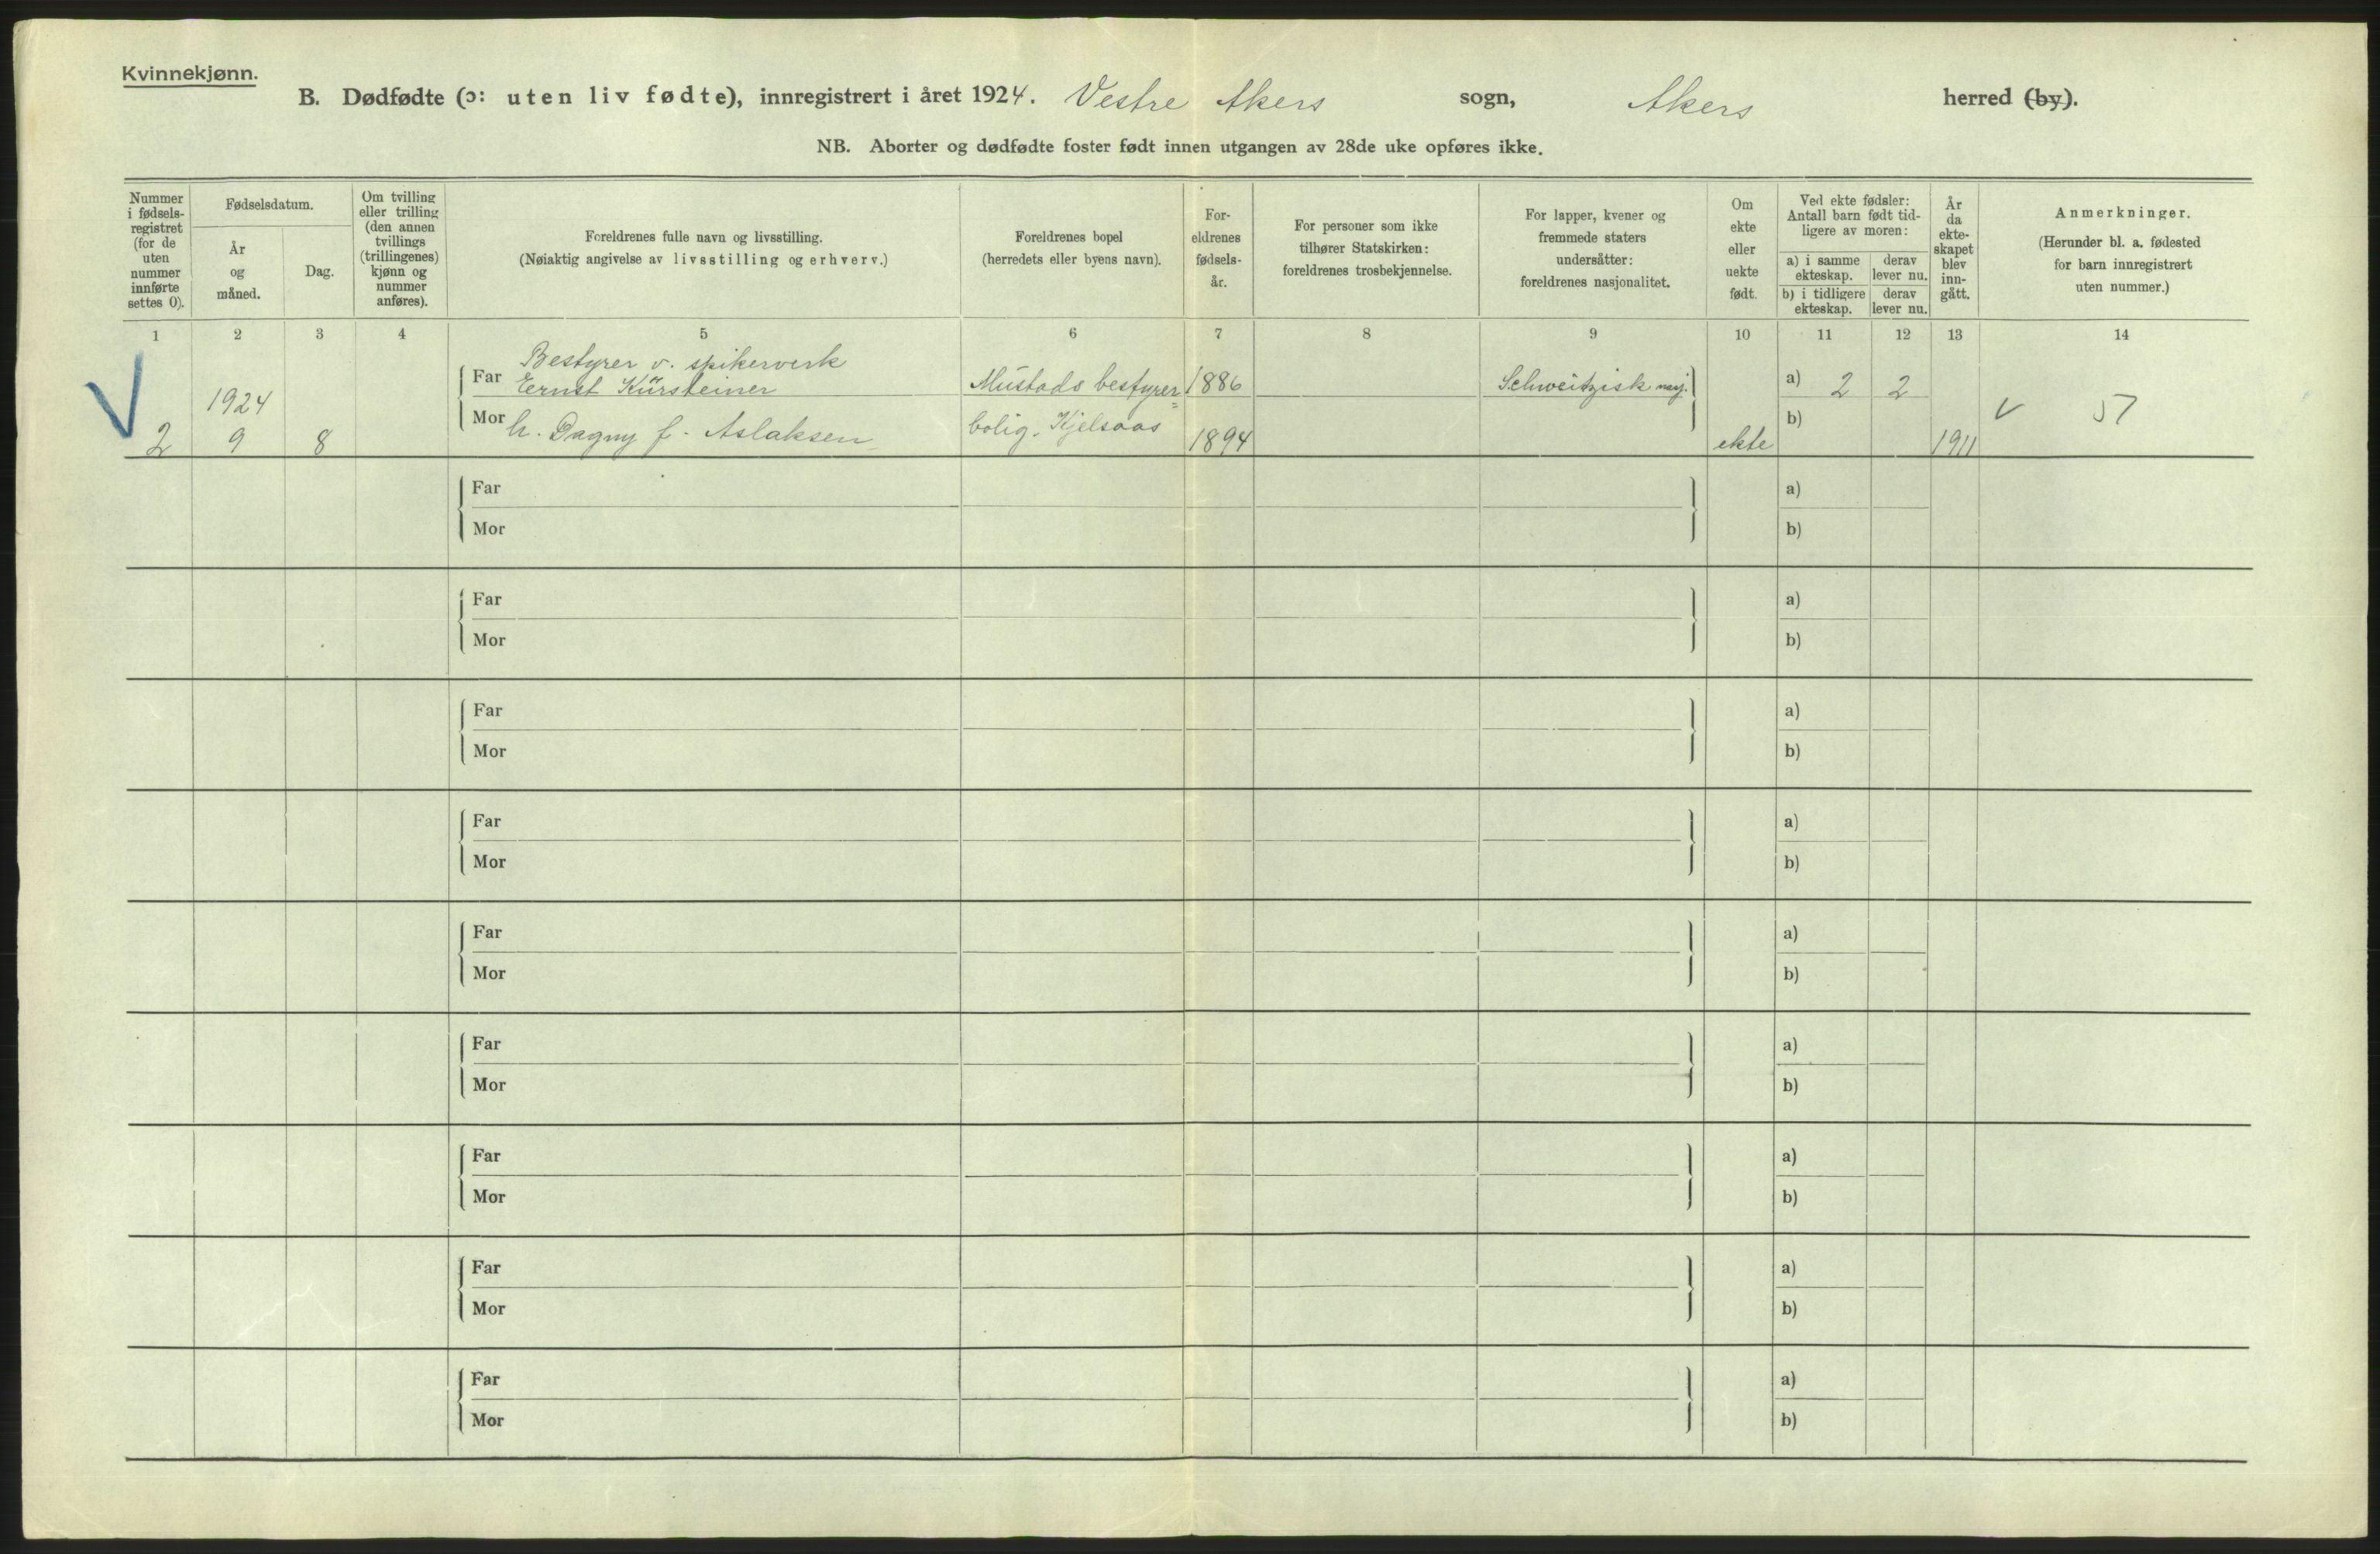 Kvinnekjønn.
B. Dødfødte (ɔ: uten liv fødte), innregistrert i året 1924. Vestre Akers sogn, Akers herred (by).
NB. Aborter og dødfødte foster født innen utgangen av 28de uke opføres ikke.
Nummer i fødsels-registret (for de uten nummer innførte settes 0).
Fødselsdatum.
År og måned.
Dag.
Om tvilling eller trilling (den annen tvillings (trillingenes) kjønn og nummer anføres).
Foreldrenes fulle navn og livsstilling.
(Nøiaktig angivelse av livsstilling og erhverv.)
Foreldrenes bopel
(herredets eller byens navn).
For-eldrenes fødsels-år.
For personer som ikke tilhører Statskirken: foreldrenes trosbekjennelse.
For lapper, kvener og fremmede staters undersåtter: foreldrenes nasjonalitet.
Om ekte eller uekte født.
Ved ekte fødsler: Antall barn født tid-ligere av moren:
a) i samme ekteskap.
derav lever nu.
b) i tidligere ekteskap.
derav lever nu.
År da ekte-skapet blev inn-gått.
Anmerkninger.
(Herunder bl. a. fødested for barn innregistrert uten nummer.)
1 2 3 4 5 6 7 8 9 10 11 12 13 14
Bestyrer v. spikerverk
Far Ernst Kürsteiner Mustads bestyrer= 1886 Schweitzisk nasj. a) 2 2
1924
Mor h. Dagny f. Aslaksen bolig. Kjelsaas 1894 b)
2 9 8 ekte 1911 57
Far a)
Mor b)
Far a)
Mor b)
Far a)
Mor b)
Far a)
Mor b)
Far a)
Mor b)
Far a)
Mor b)
Far a)
Mor b)
Far a)
Mor b)
Far a)
Mor b)